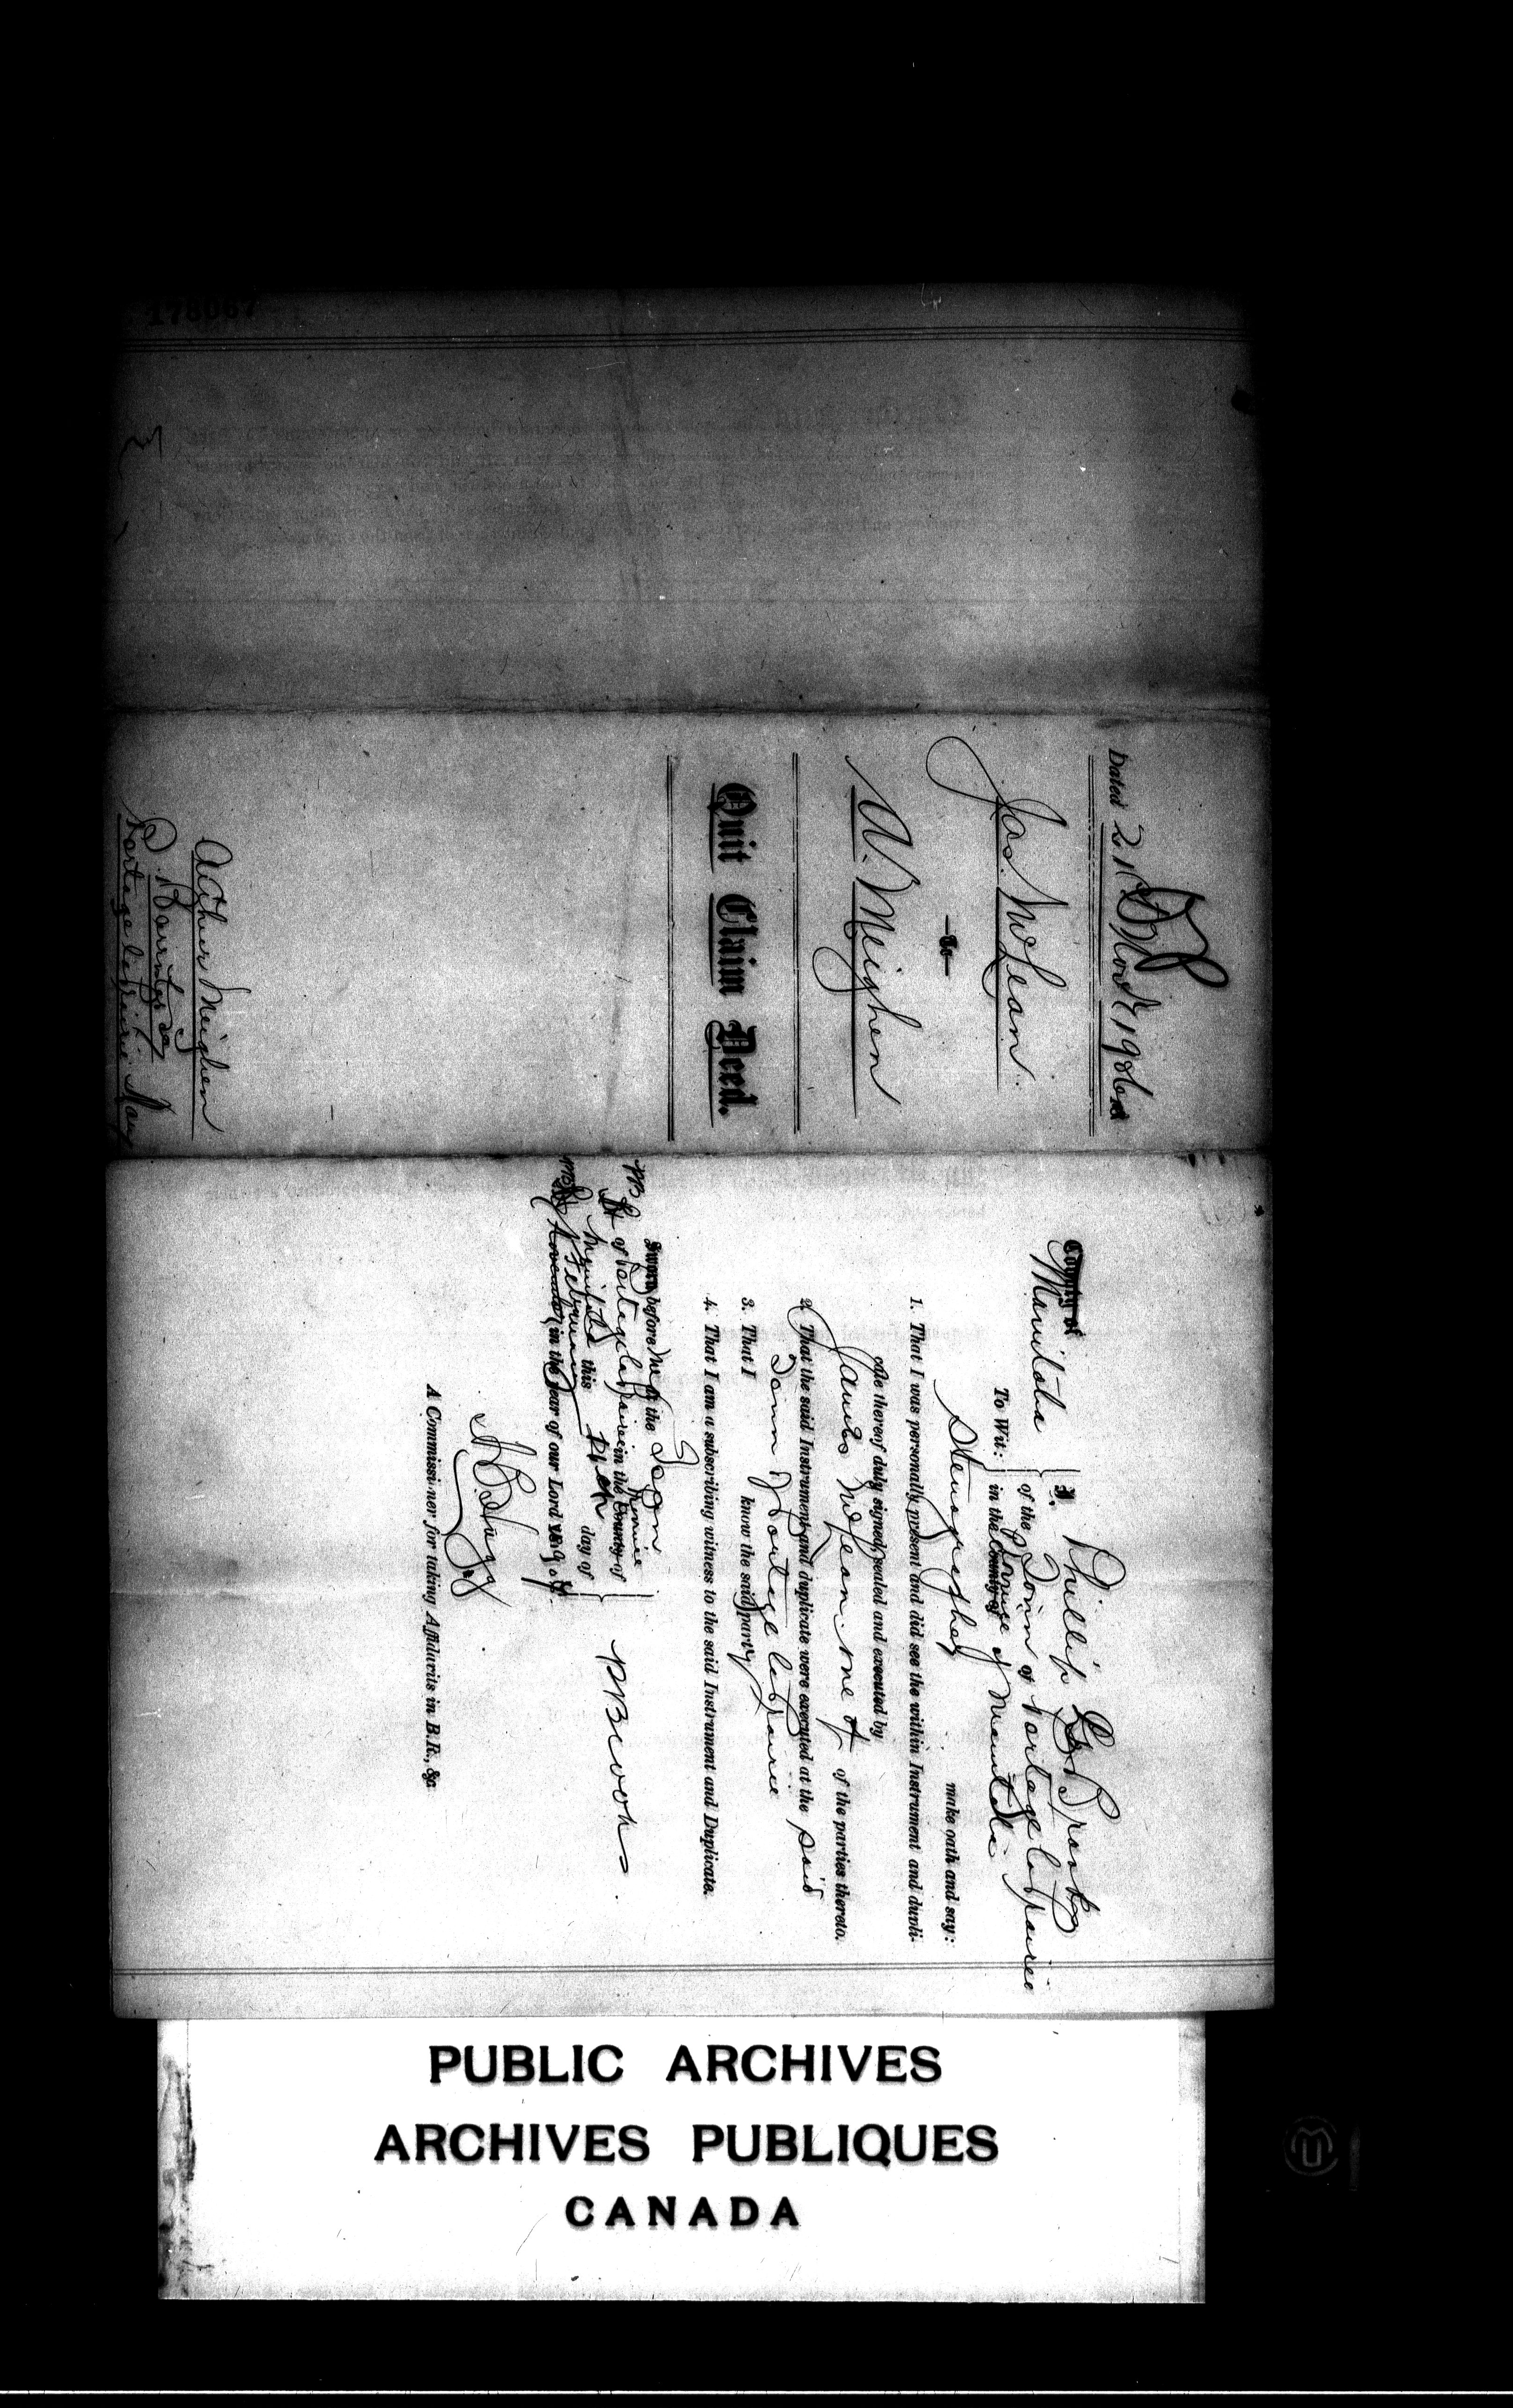 178067
Dated 21st Novr 1906
Jas. McLean
—To—
A. Meighen
Quit Claim Deed.
Arthur Meighen
Barrister
Portage la Prairie Man
County of
Manitoba
To Wit:
I, Phillip
of the Town of Portage la Prairie
in the County of Province of Manitoba
Stenographer make oath and say:
1. That I was personally present and did see the within Instrument and dupli-
cate thereof duly signed, sealed and executed by
James McLean one of of the parties thereto.
2. That the said Instrument and duplicate were executed at the said
Town of Portage la Prairie
3. That I know the said party
4. That I am a subscribing witness to the said Instrument and Duplicate.
Sworn before me at the Town
of Portage la Prairie in the County of
Manitoba this day of
November February in the year of our Lord
A Commissioner for taking Affidavits in B.R., &c.
PUBLIC ARCHIVES
ARCHIVES PUBLIQUES
CANADA